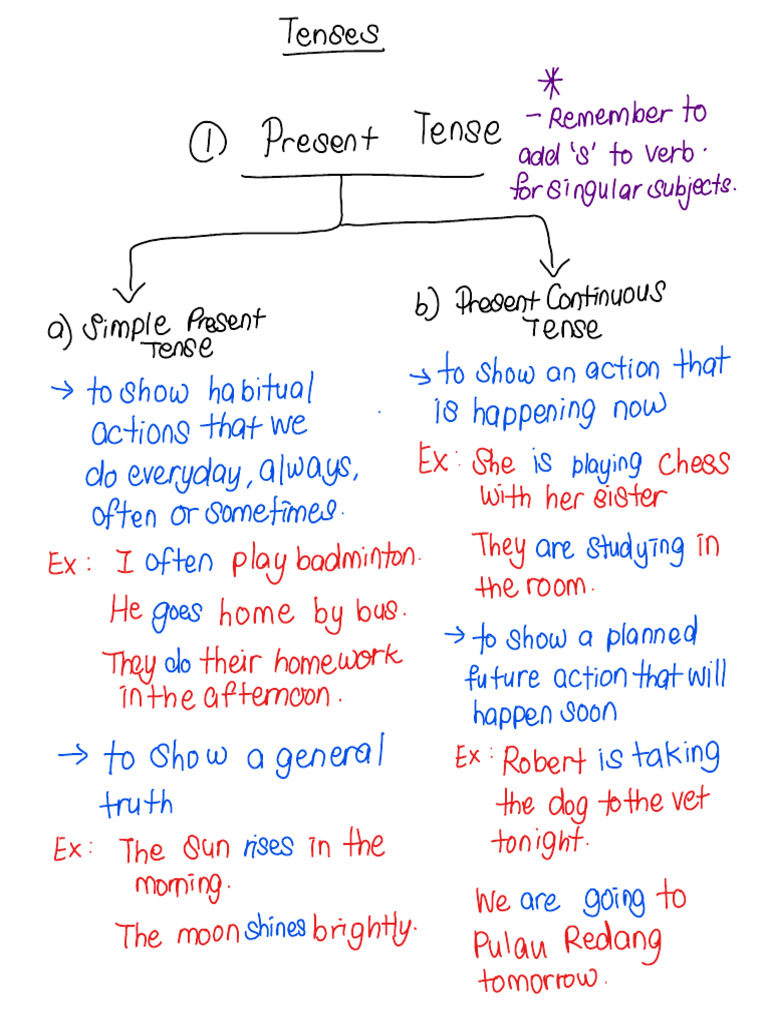 Tenses
① Present Tense
*
- Remember to
add 's' to verb.
for singular subjects.
a) Simple Present
Tense
→ to show habitual
actions that we
do everyday, always,
often or sometimes.
Ex: I often play badminton.
He goes home by bus.
They do their homework
in the afternoon.
→ to show a general
truth
Ex: The sun rises in the
morning.
The moon shines brightly.
b) Present Continuous
Tense
→ to show an action that
is happening now
Ex: She is playing chess
with her sister
They are studying in
the room.
→ to show a planned
future action that will
happen soon
Ex: Robert is taking
the dog to the vet
tonight.
We are going to
Pulau Redang
tomorrow.